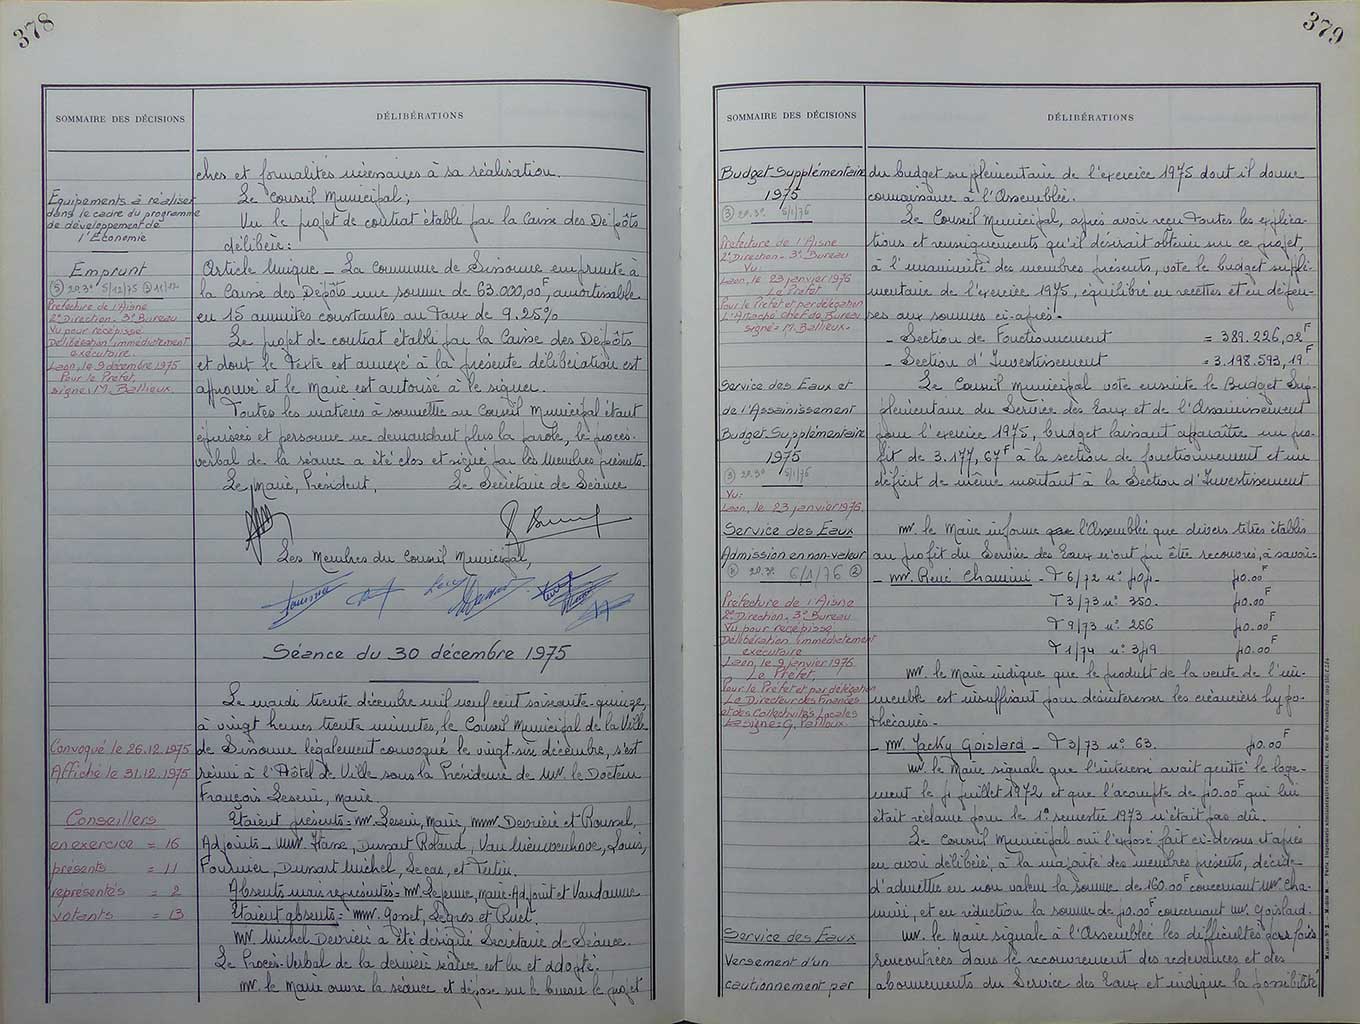 378
SOMMAIRE DES DÉCISIONS
DÉLIBÉRATIONS
ches et formalités nécessaires à sa réalisation.
Le Conseil Municipal;
Equipements à réaliser
dans le cadre du programme
de développement de
l'Economie
Vu le projet de contrat établi par la Caisse des Dépôts
délibère:
Emprunt
20.3° 5/12/75
Préfecture de l'Aisne
2° Direction. 3° Bureau
Vu pour récépissé
Délibération immédiatement
exécutoire.
Laon, le 9 décembre 1975
Pour le Préfet,
signé: M. Ballieux.
Article Unique - La Commune de Sissonne emprunte à
la Caisse des Dépôts une somme de 63.000,00F, amortissable
en 15 annuités constantes au taux de 9.25%
Le projet de contrat établi par la Caisse des Dépôts
et dont le texte est annexé à la présente délibération est
approuvé et le Maire est autorisé à le signer.
Toutes les matières à soumettre au Conseil Municipal étant
épuisées et personne ne demandant plus la parole, le procès-
verbal de la séance a été clos et signé par les Membres présents.
Le Maire, Président, Le Secrétaire de Séance
Les Membres du Conseil Municipal,
Séance du 30 décembre 1975
Le mardi trente décembre mil neuf cent soixante-quinze,
à vingt heures trente minutes, le Conseil Municipal de la Ville
Convoqué le 26.12.1975
Affiché le 31.12.1975
de Sissonne légalement convoqué le vingt-six décembre, s'est
réuni à l'Hôtel de Ville sous la Présidence de Mr. le Docteur
François Leseur, Maire.
Conseillers
en exercice = 16
présents = 11
représentés = 2
votants = 13
Etaient présents = MM. Leseur, Maire, MM. Devrière et Roussel,
Adjoints - MM. Dussart Roland, Van Nieuwenhove, Louis,
Fournier, Dussart Michel, Lecas, et Tertin.
Absents mais représentés = MM. Lepenne, Maire-Adjoint et Vandamme
Etaient absents = MM. Gosset, Legros et
Mr. Michel Devrière a été désigné Secrétaire de Séance.
Le Procès-Verbal de la dernière séance est lu et adopté.
Mr. le Maire ouvre la séance et dépose sur le bureau le projet
379
SOMMAIRE DES DÉCISIONS
DÉLIBÉRATIONS
Budget Supplémentaire
1975
20.3° 5/1/76
Préfecture de l'Aisne
2° Direction - 3° Bureau
Vu:
Laon, le 23 janvier 1976
Le Préfet
Pour le Préfet et par délégation
L'Attaché Chef de Bureau
signé = M. Ballieux.
du budget supplémentaire de l'exercice 1975 dont il donne
connaissance à l'Assemblée.
Le Conseil Municipal, après avoir reçu toutes les explica-
tions et renseignements qu'il désirait obtenir sur ce projet,
à l'unanimité des membres présents, vote le budget supplé-
mentaire de l'exercice 1975, équilibré en recettes et en dépen-
ses aux sommes ci-après.
- Section de Fonctionnement = 389.226,02F
- Section d'Investissement = 3.198.593,19F
Service des Eaux et
de l'Assainissement
Budget Supplémentaire
1975
20.3° 5/1/76
Vu:
Laon, le 23 janvier 1976.
Le Conseil Municipal vote ensuite le Budget Sup-
plémentaire du Service des Eaux et de l'Assainissement
pour l'exercice 1975, budget laissant apparaître un pro-
fit de 3.177,67F à la section de fonctionnement et un
déficit de même montant à la Section d'Investissement
Service des Eaux
Admission en non-valeur
20.3° 6/1/76
Préfecture de l'Aisne
2° Direction - 3° Bureau
Vu pour récépissé
Délibération immédiatement
exécutoire
Laon, le 9 janvier 1976.
Le Préfet,
Pour le Préfet et par délégation
Le Directeur des Finances
et des Collectivités Locales
signé = G. Failloux.
Mr. le Maire informe l'Assemblée que divers titres établis
au profit du Service des Eaux n'ont pu être recouvrés, à savoir:
- Mr. René Chamini - T 6/72 n° 40.00F
T 3/73 n° 350. 40.00F
T 9/73 n° 256 40.00F
T 1/74 n° 349 40.00F
Mr. le Maire indique que le produit de la vente de l'im-
meuble est insuffisant pour désintéresser les créanciers hypo-
thécaires.
- Mr. Jacky Goislard - T 3/73 n° 63. 40.00F
Mr. le Maire signale que l'intéressé avait quitté le loge-
ment le juillet 1972 et que l'acompte de 40.00F qui lui
était réclamé pour le 1° semestre 1973 n'était pas dû.
Le Conseil Municipal ouï l'exposé fait ci-dessus et après
en avoir délibéré, à la majorité des membres présents, décide
d'admettre en non valeur la somme de 160.00F concernant Mr. Cha-
mini, et en réduction la somme de 40.00F concernant Mr. Goislard.
Service des Eaux
Versement d'un
cautionnement par
Mr. le Maire signale à l'Assemblée les difficultés parfois
rencontrées dans le recouvrement des redevances et des
abonnements du Service des Eaux et indique la possibilité